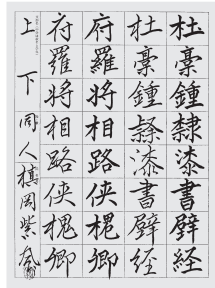 杜稾鍾隸漆書壁経
杜稾鍾隸漆書壁経
府羅将相路侠槐卿
府羅将相路侠槐卿
上下 同人